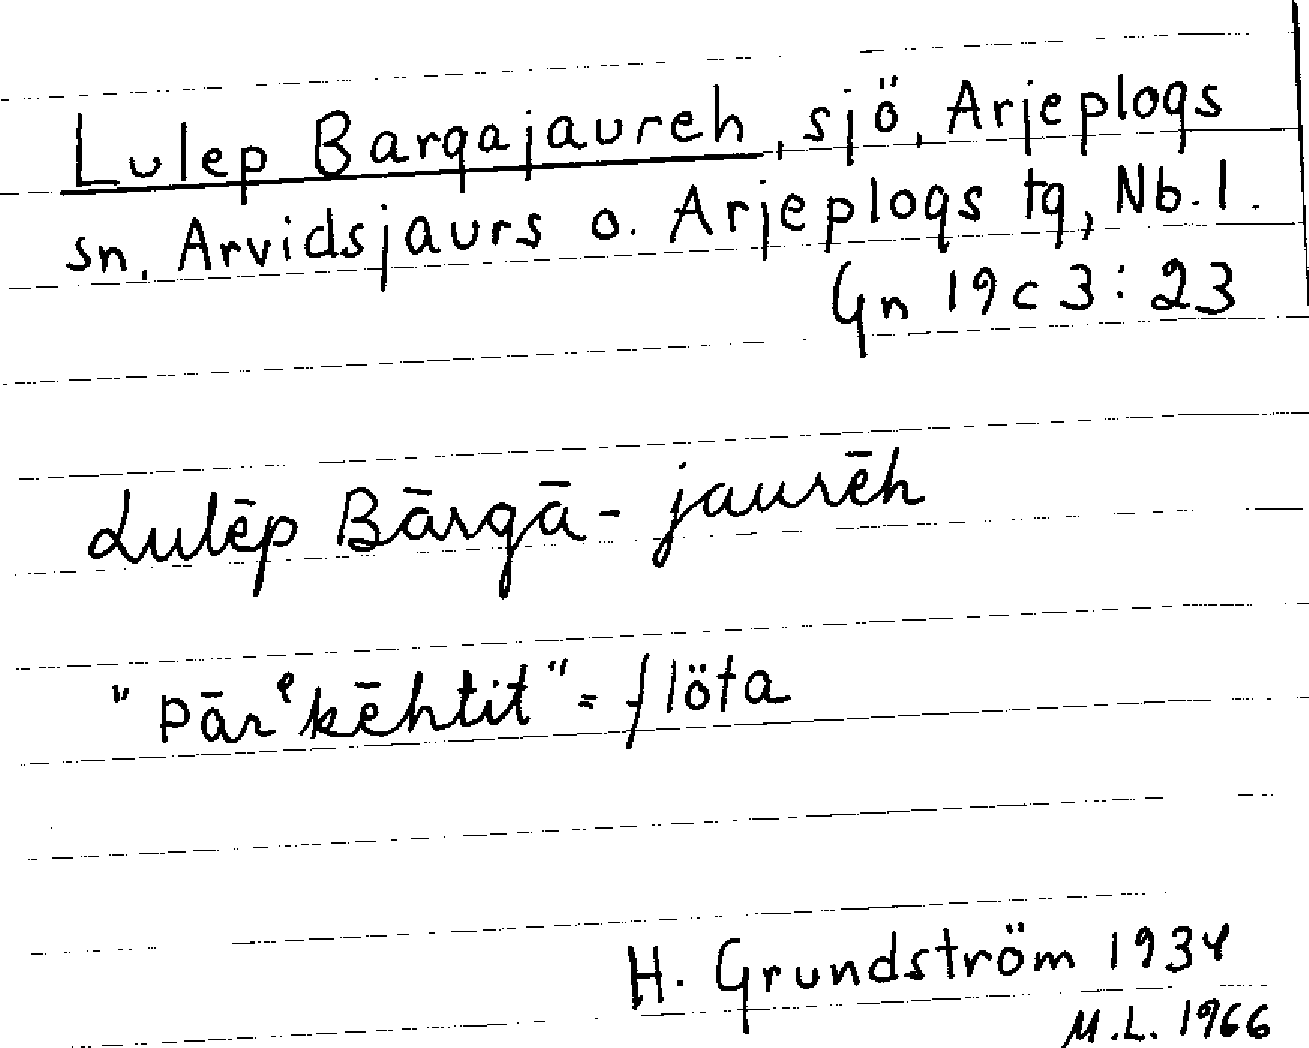 Lulep Bargajaureh, sjö, Arjeplogs
sn. Arvidsjaurs o. Arjeplogs tg, Nb. l.
Gn 19c 3:23
Lulēp Bārgā-jaurēh
"pārᵉkēhtit" = flöta
H. Grundström 1934
M.L. 1966